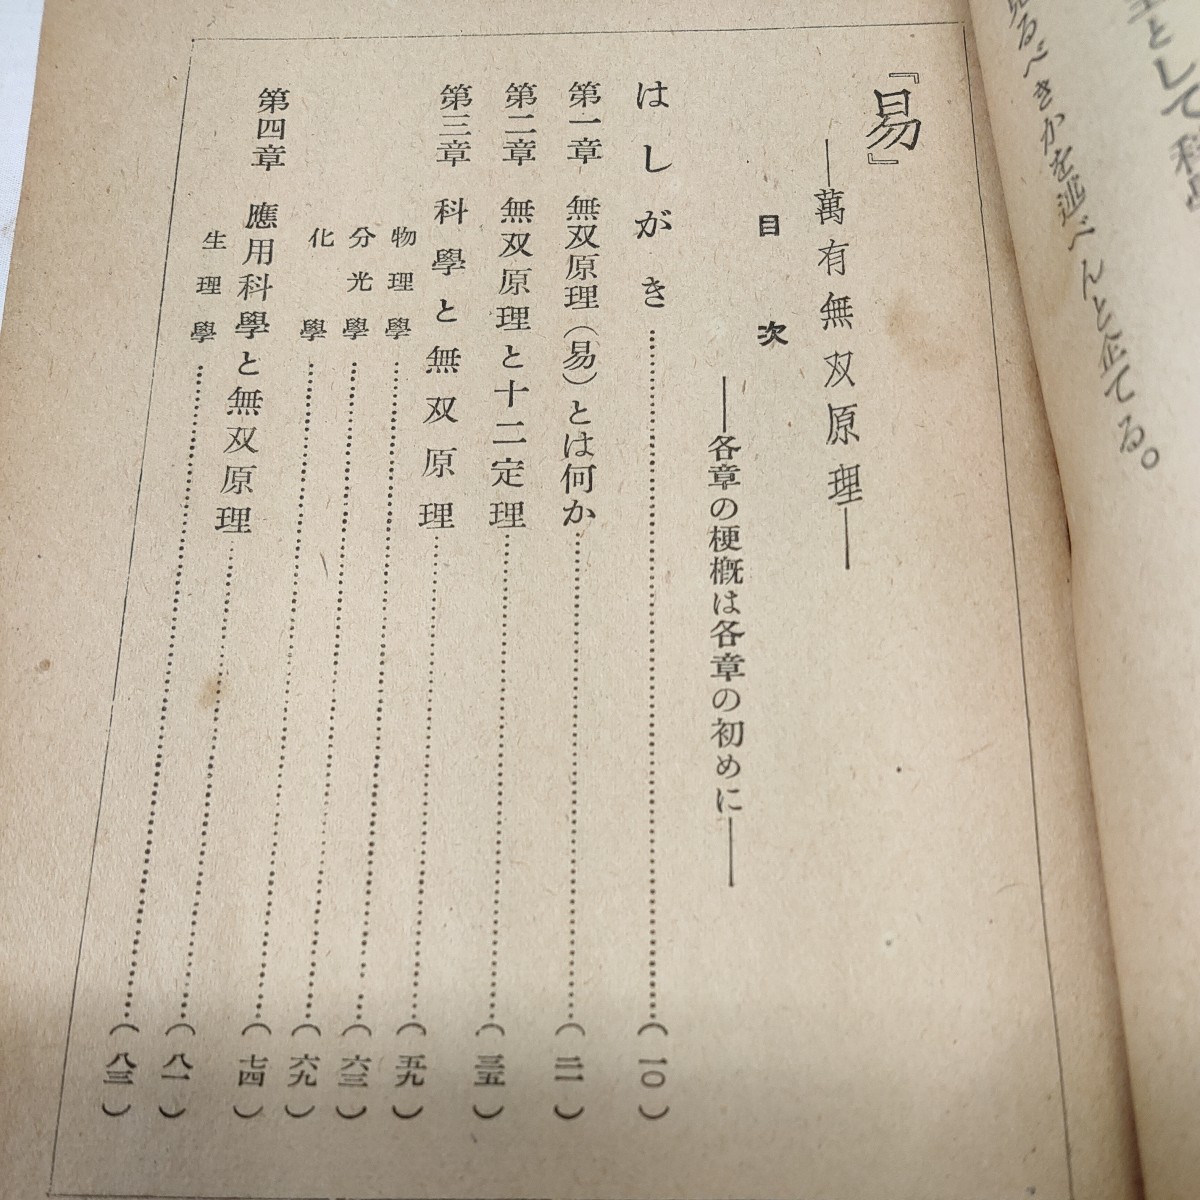 として科
るべきかを述べんと企てる。
『易』
―萬有無双原理―
目次
―各章の梗槪は各章の初めに―
はしがき……………(一〇)
第一章 無双原理(易)とは何か……………(二一)
第二章 無双原理と十二定理……………(三五)
第三章 科學と無双原理……………(五九)
物理學……………(六三)
分光學……………(六九)
化學……………(七四)
第四章 應用科學と無双原理……………(八一)
生理學……………(八三)